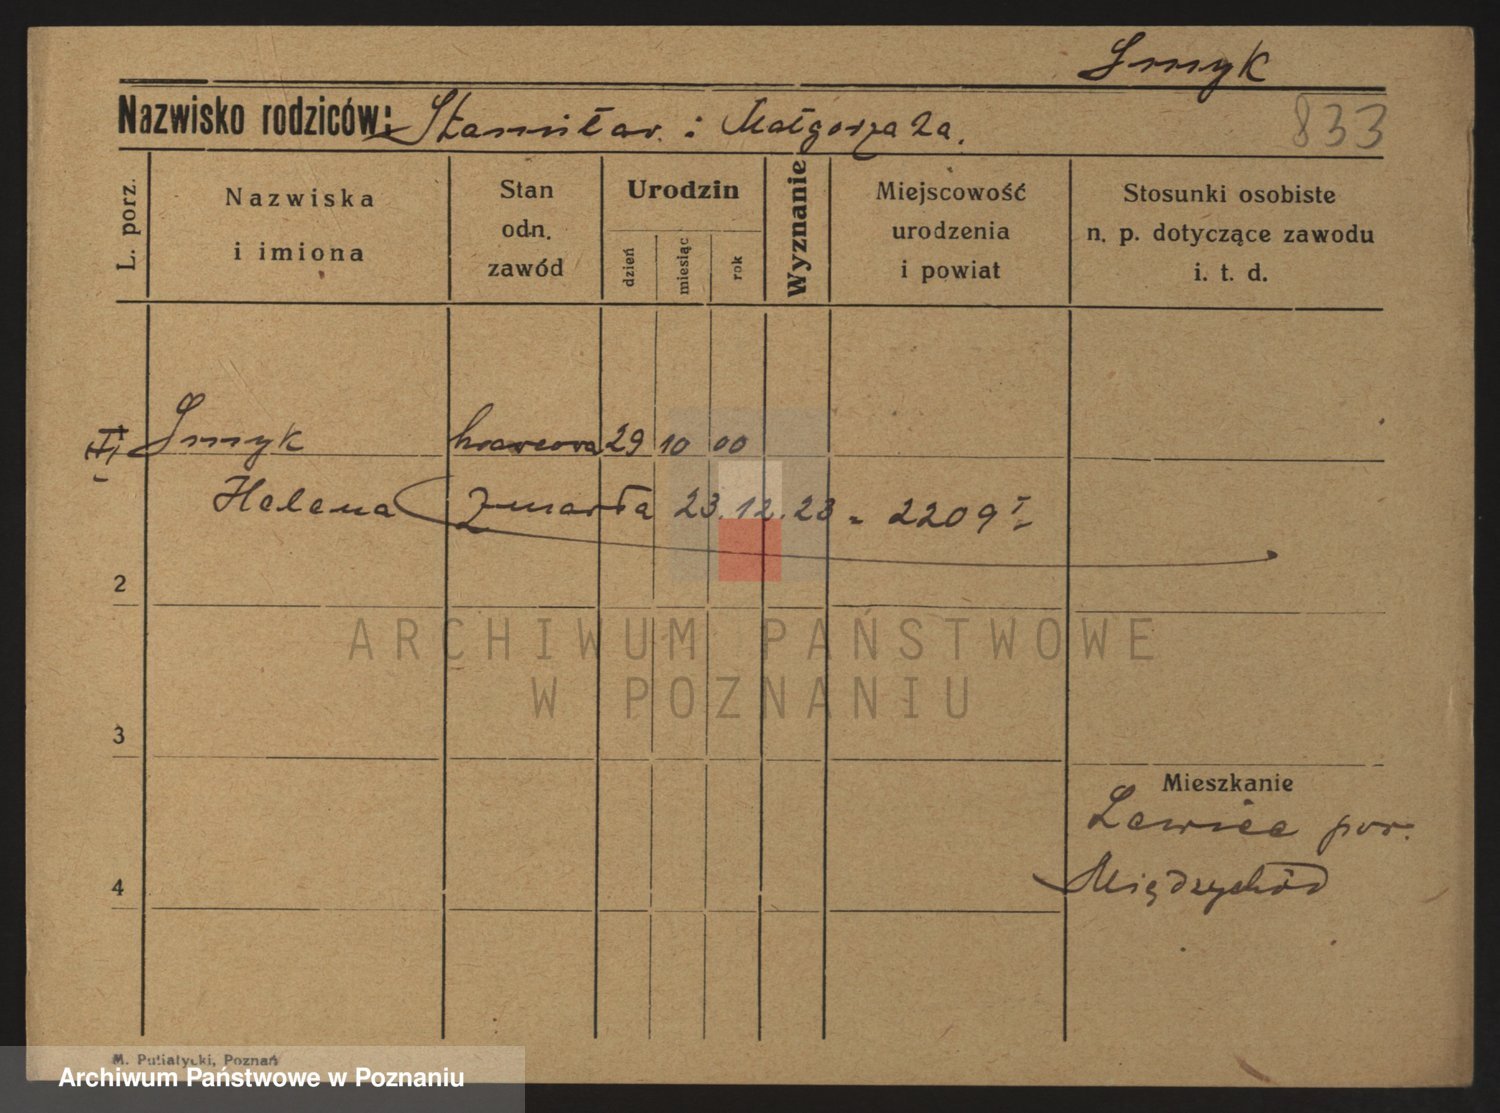 Smyk
833
Nazwisko rodziców: Stanisław i Małgorzata.
L. porz.
Nazwiska
i imiona
Stan
odn.
zawód
Urodzin
dzień
miesiąc
rok
Wyznanie
Miejscowość
urodzenia
i powiat
Stosunki osobiste
n. p. dotyczące zawodu
i. t. d.
Smyk krawcowa 29 10 00
Helena zmarła 23.12.23 = 2209 I
2
3
4
Mieszkanie
Ławica pow.
Międzychód
ARCHIWUM PAŃSTWOWE
W POZNANIU
M. Putiatycki, Poznań
Archiwum Państwowe w Poznaniu